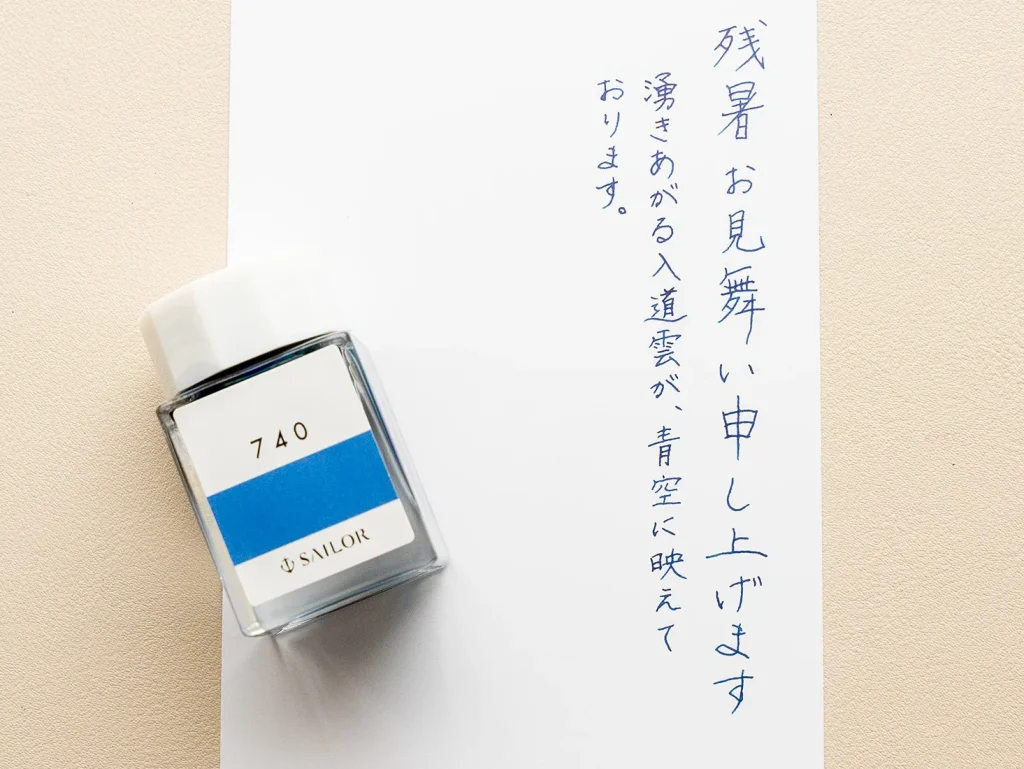 残暑お見舞い申し上げます
湧きあがる入道雲が、青空に映えて
おります。
740
SAILOR